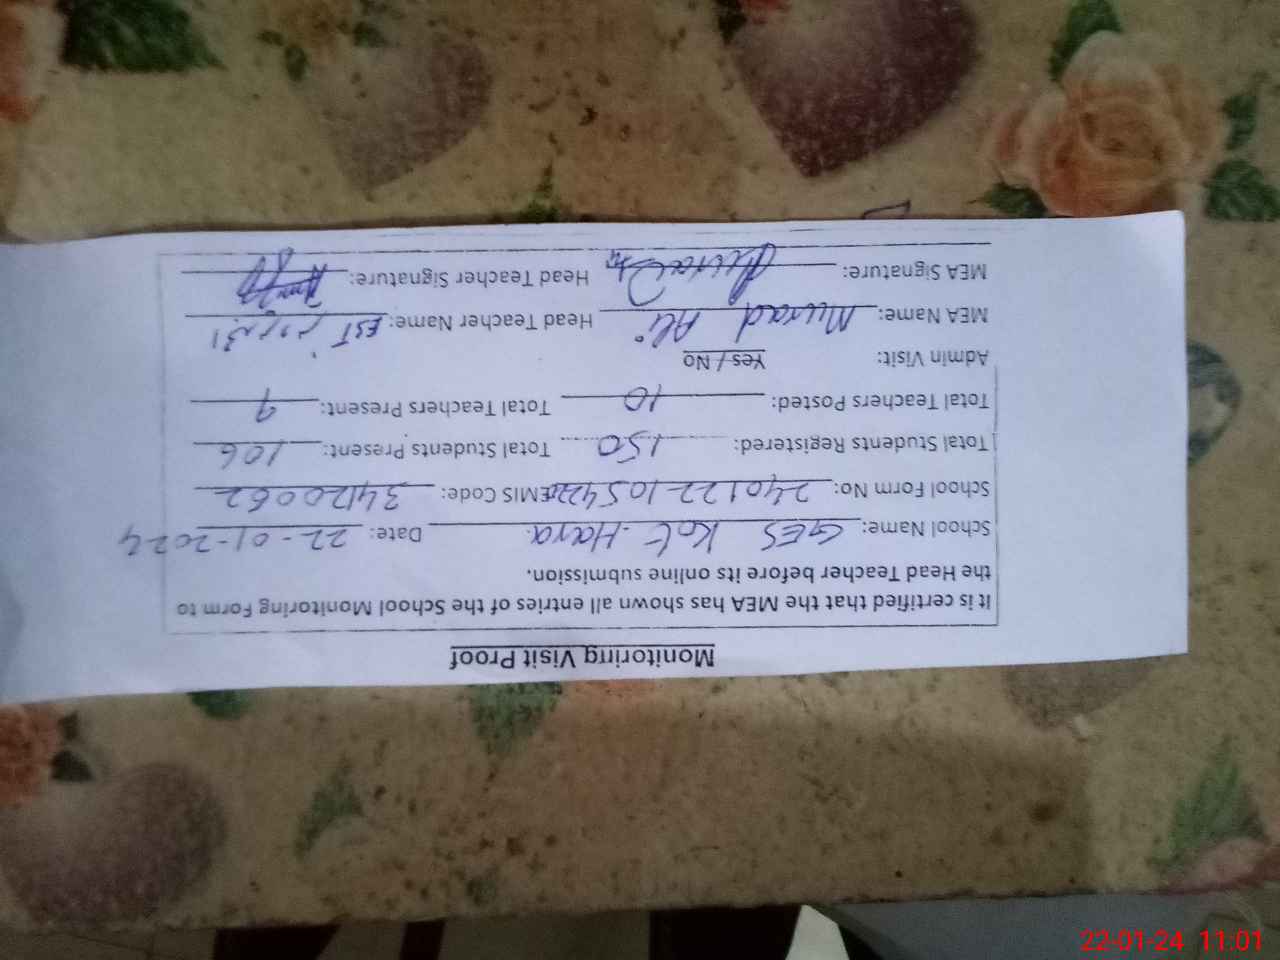 Monitoring Visit Proof
It is certified that the MEA has shown all entries of the School Monitoring Form to
the Head Teacher before its online submission.
School Name: GES Kot Hara. Date: 22-01-2024
School Form No: EMIS Code: 34120062
Total Students Registered: 150 Total Students Present: 106
Total Teachers Posted: 10 Total Teachers Present: 9
Admin Visit: Yes / No
MEA Name: Murad Ali Head Teacher Name: EST
MEA Signature: Head Teacher Signature:
22-01-24 11:01